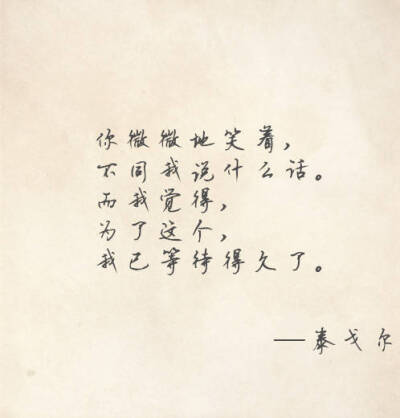 你微微地笑着，
不同我说什么话。
而我觉得，
为了这个，
我已等待得久了。
——泰戈尔